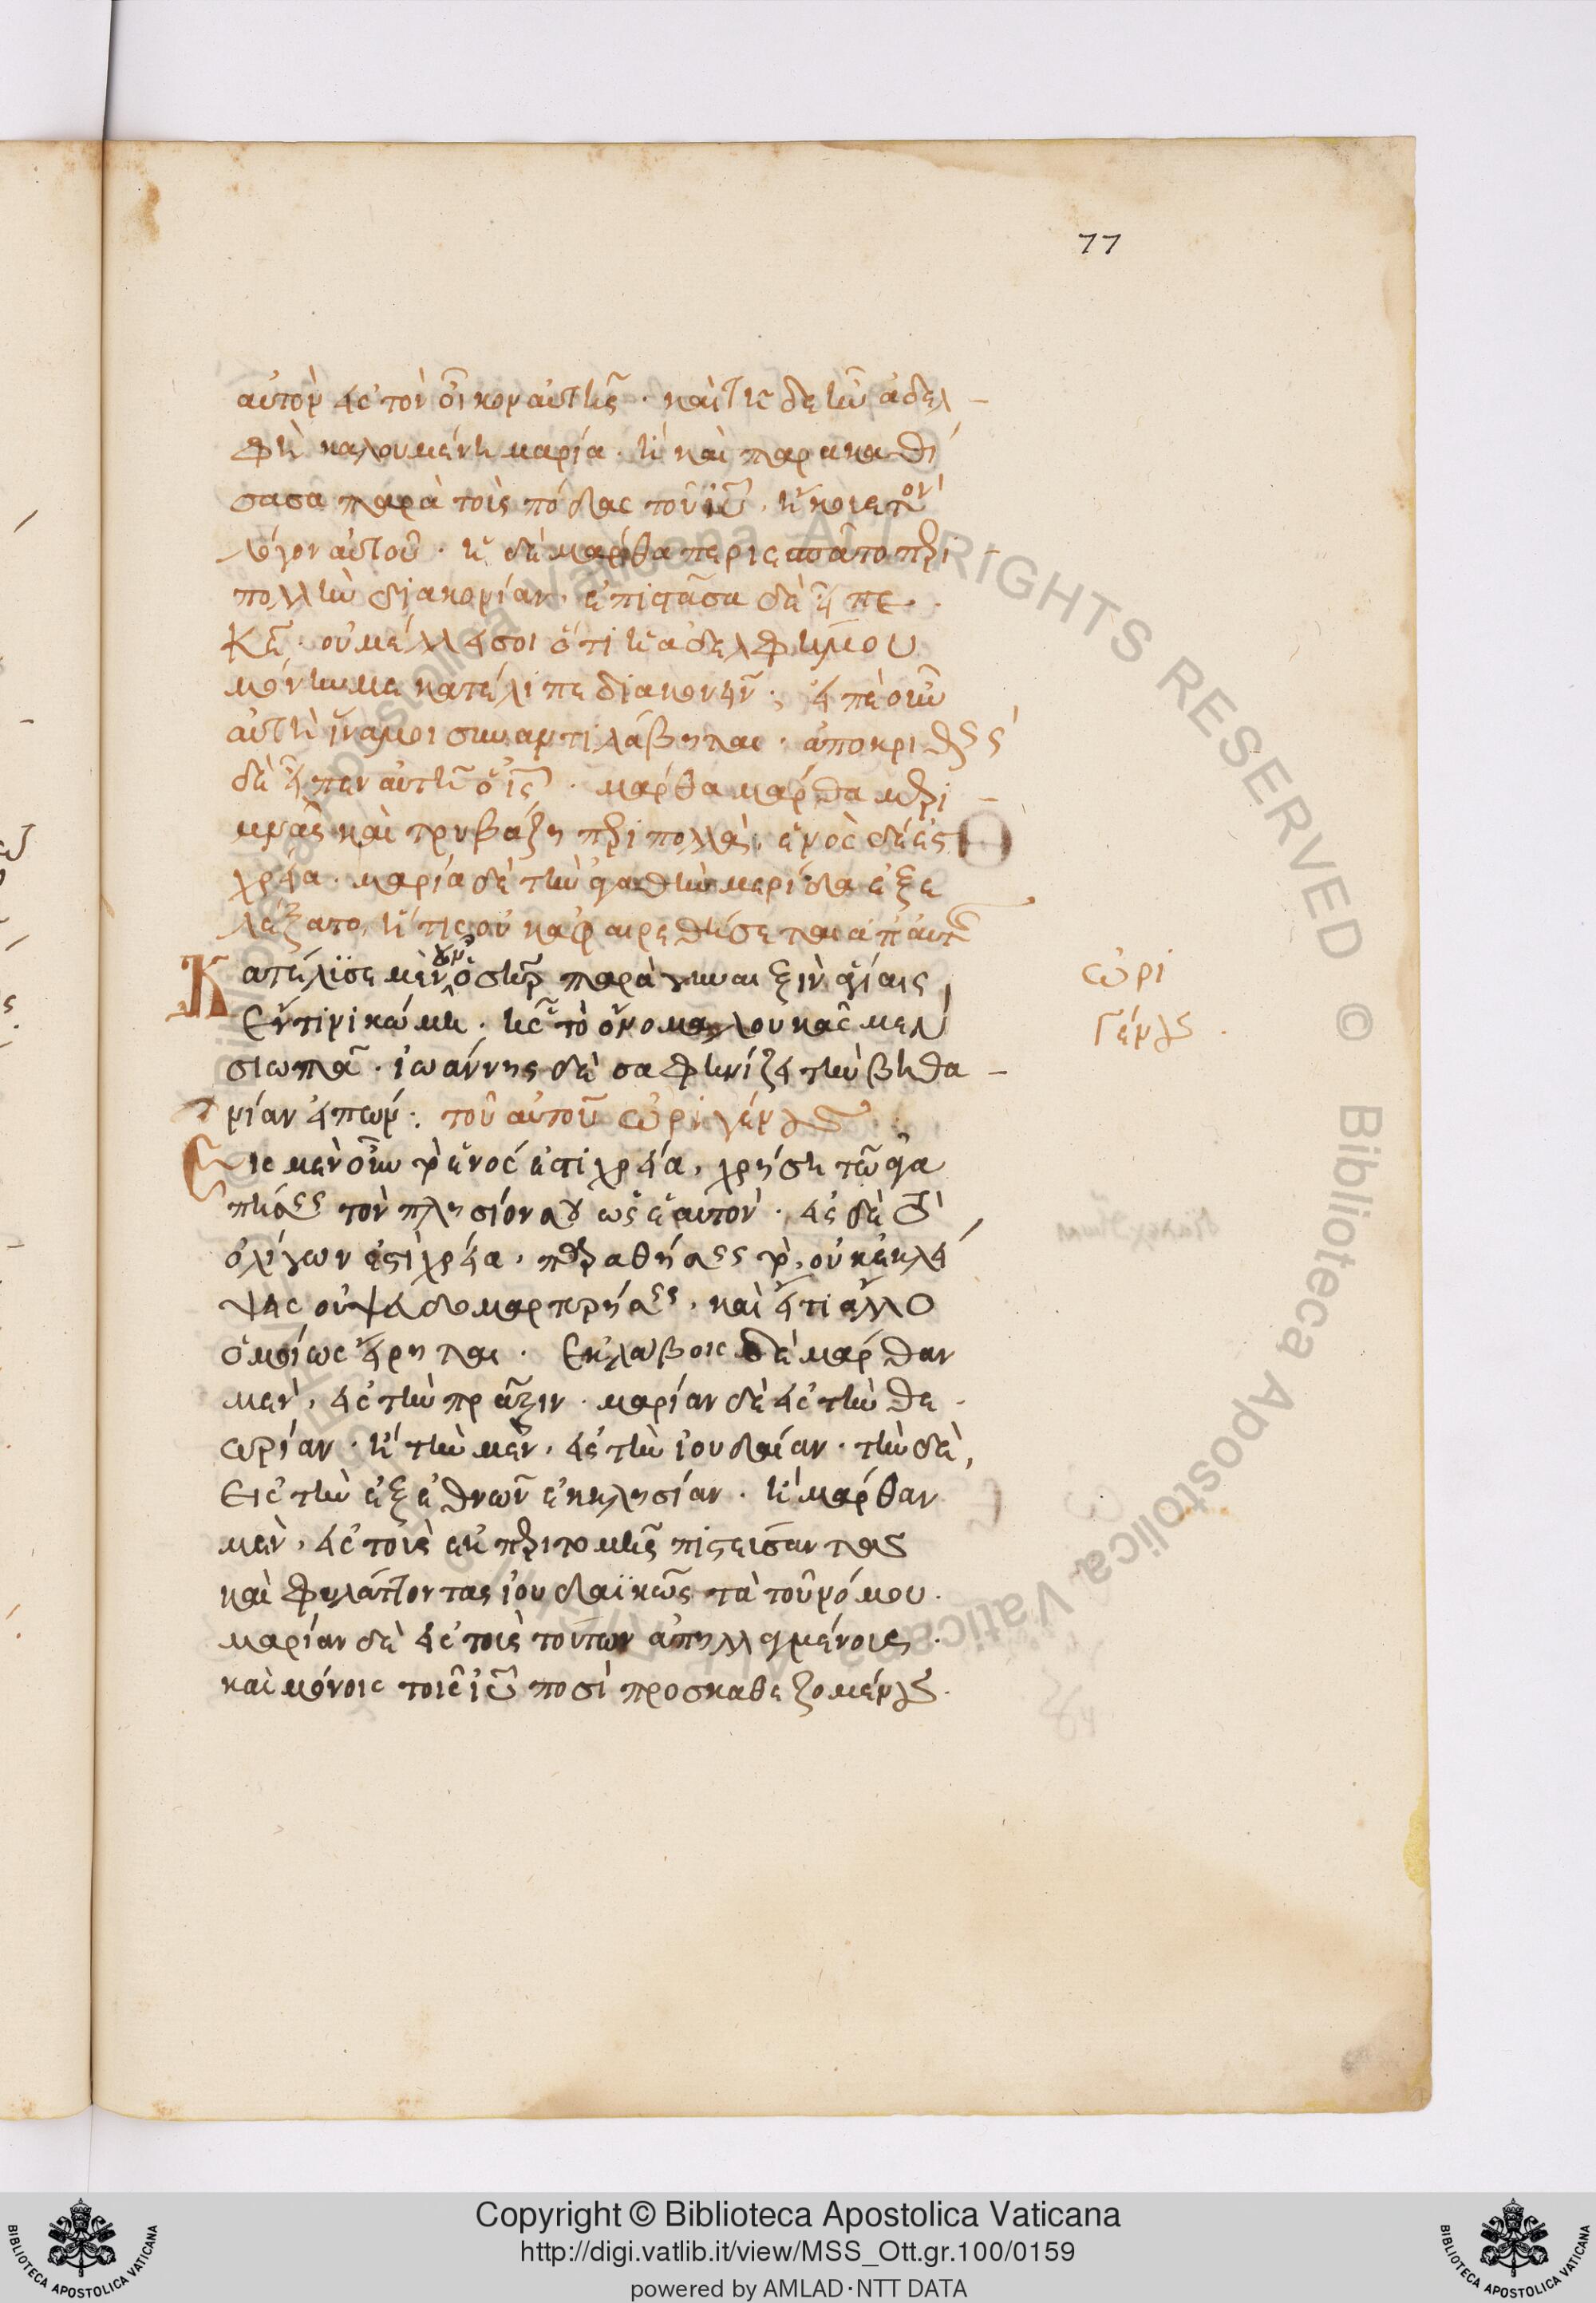 77
αὐτὸν εἰς τὸν οἶκον αὐτῆς · καὶ τῆδε ἦν ἀδελ –
φὴ καλουμένη μαρία · ἣ καὶ παρακαθί
σασα παρὰ τοὺς πόδας τοῦ ἰῦ · ἤκουε τὸν
λόγον αὐτοῦ · ἡ δὲ μάρθα περιεσπᾶτο περὶ –
πολλὴν διακονίαν · ἐπιστᾶσα δὲ εἶπε ·
κε · οὐ μέλλει σοι ὅτι ἡ ἀδελφή μου
μόνην με κατέλιπε διακονεῖν ; εἰπὲ οὖν
αὐτῇ ἵνα μοι συναντιλάβηται · ἀποκριθεὶς
δὲ εἶπεν αὐτῇ ὁ ις · μάρθα μάρθα μερι –
μνᾷς καὶ τυρβάζη περὶ πολλὰ · ἑνὸς δέ ἐστι
χρεία · μαρία δὲ τὴν ἀγαθὴν μερίδα ἐξε
λέξατο, ἥτις οὐκ ἀφαιρεθήσεται ἀπ' αὐτῆς
Κατέλυσε μὲν ὁ σὴρ παρὰ γυναιξὶν ἁγίαις, ὠρι
Ἔν τινι κώμη · ἧς τὸ ὄνομα λουκᾶς μὲν γένους ·
σιωπᾶ · ἰωάννης δὲ σαφηνίζει τὴν βηθα –
νίαν εἰπών · τοῦ αὐτοῦ ὠριγένους
Εἰς μὲν οὖν ἑνός ἐστι χρεία · χρήση τῶ ἀγα
πήσεις τὸν πλησίον σου ὡς ἑαυτὸν · εἰς δὲ τὸ
ὀλίγων ἐστὶ χρεία · τὸ, οὐ κλέ
ψεις οὐ ψευδομαρτυρήσεις · καὶ εἴ τι ἄλλο
ὁμοίως εἴρηται · Ἐκλάβοις δὲ μάρθαν
μὲν, εἰς τὴν πρᾶξιν · μαρίαν δὲ εἰς τὴν θε ·
ωρίαν · ἢ τὴν μὲν, εἰς τὴν ἰουδαίαν · τὴν δὲ,
Εἰς τὴν ἐξ ἐθνῶν ἐκκλησίαν · ἢ μάρθαν
μὲν, εἰς τοὺς ἐκ περιτομῆς πιστεύσαντας
καὶ φυλάττοντας ἰουδαϊκῶς τὰ τοῦ νόμου ·
μαρίαν δὲ εἰς τοὺς τούτων ἀπηλλαγμένους ·
καὶ μόνοις τοῖς ἰῦ ποσὶ προσκαθεζομένους ·
Copyright © Biblioteca Apostolica Vaticana
http://digi.vatlib.it/view/MSS_Ott.gr.100/0159
powered by AMLAD·NTT DATA